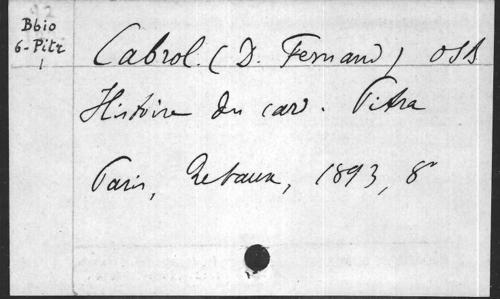 92
Bbio
6-Pitr
1
Cabrol. (D. Fernand) OSB
Histoire du card. Pitra
Paris, Retaux, 1893, 8°